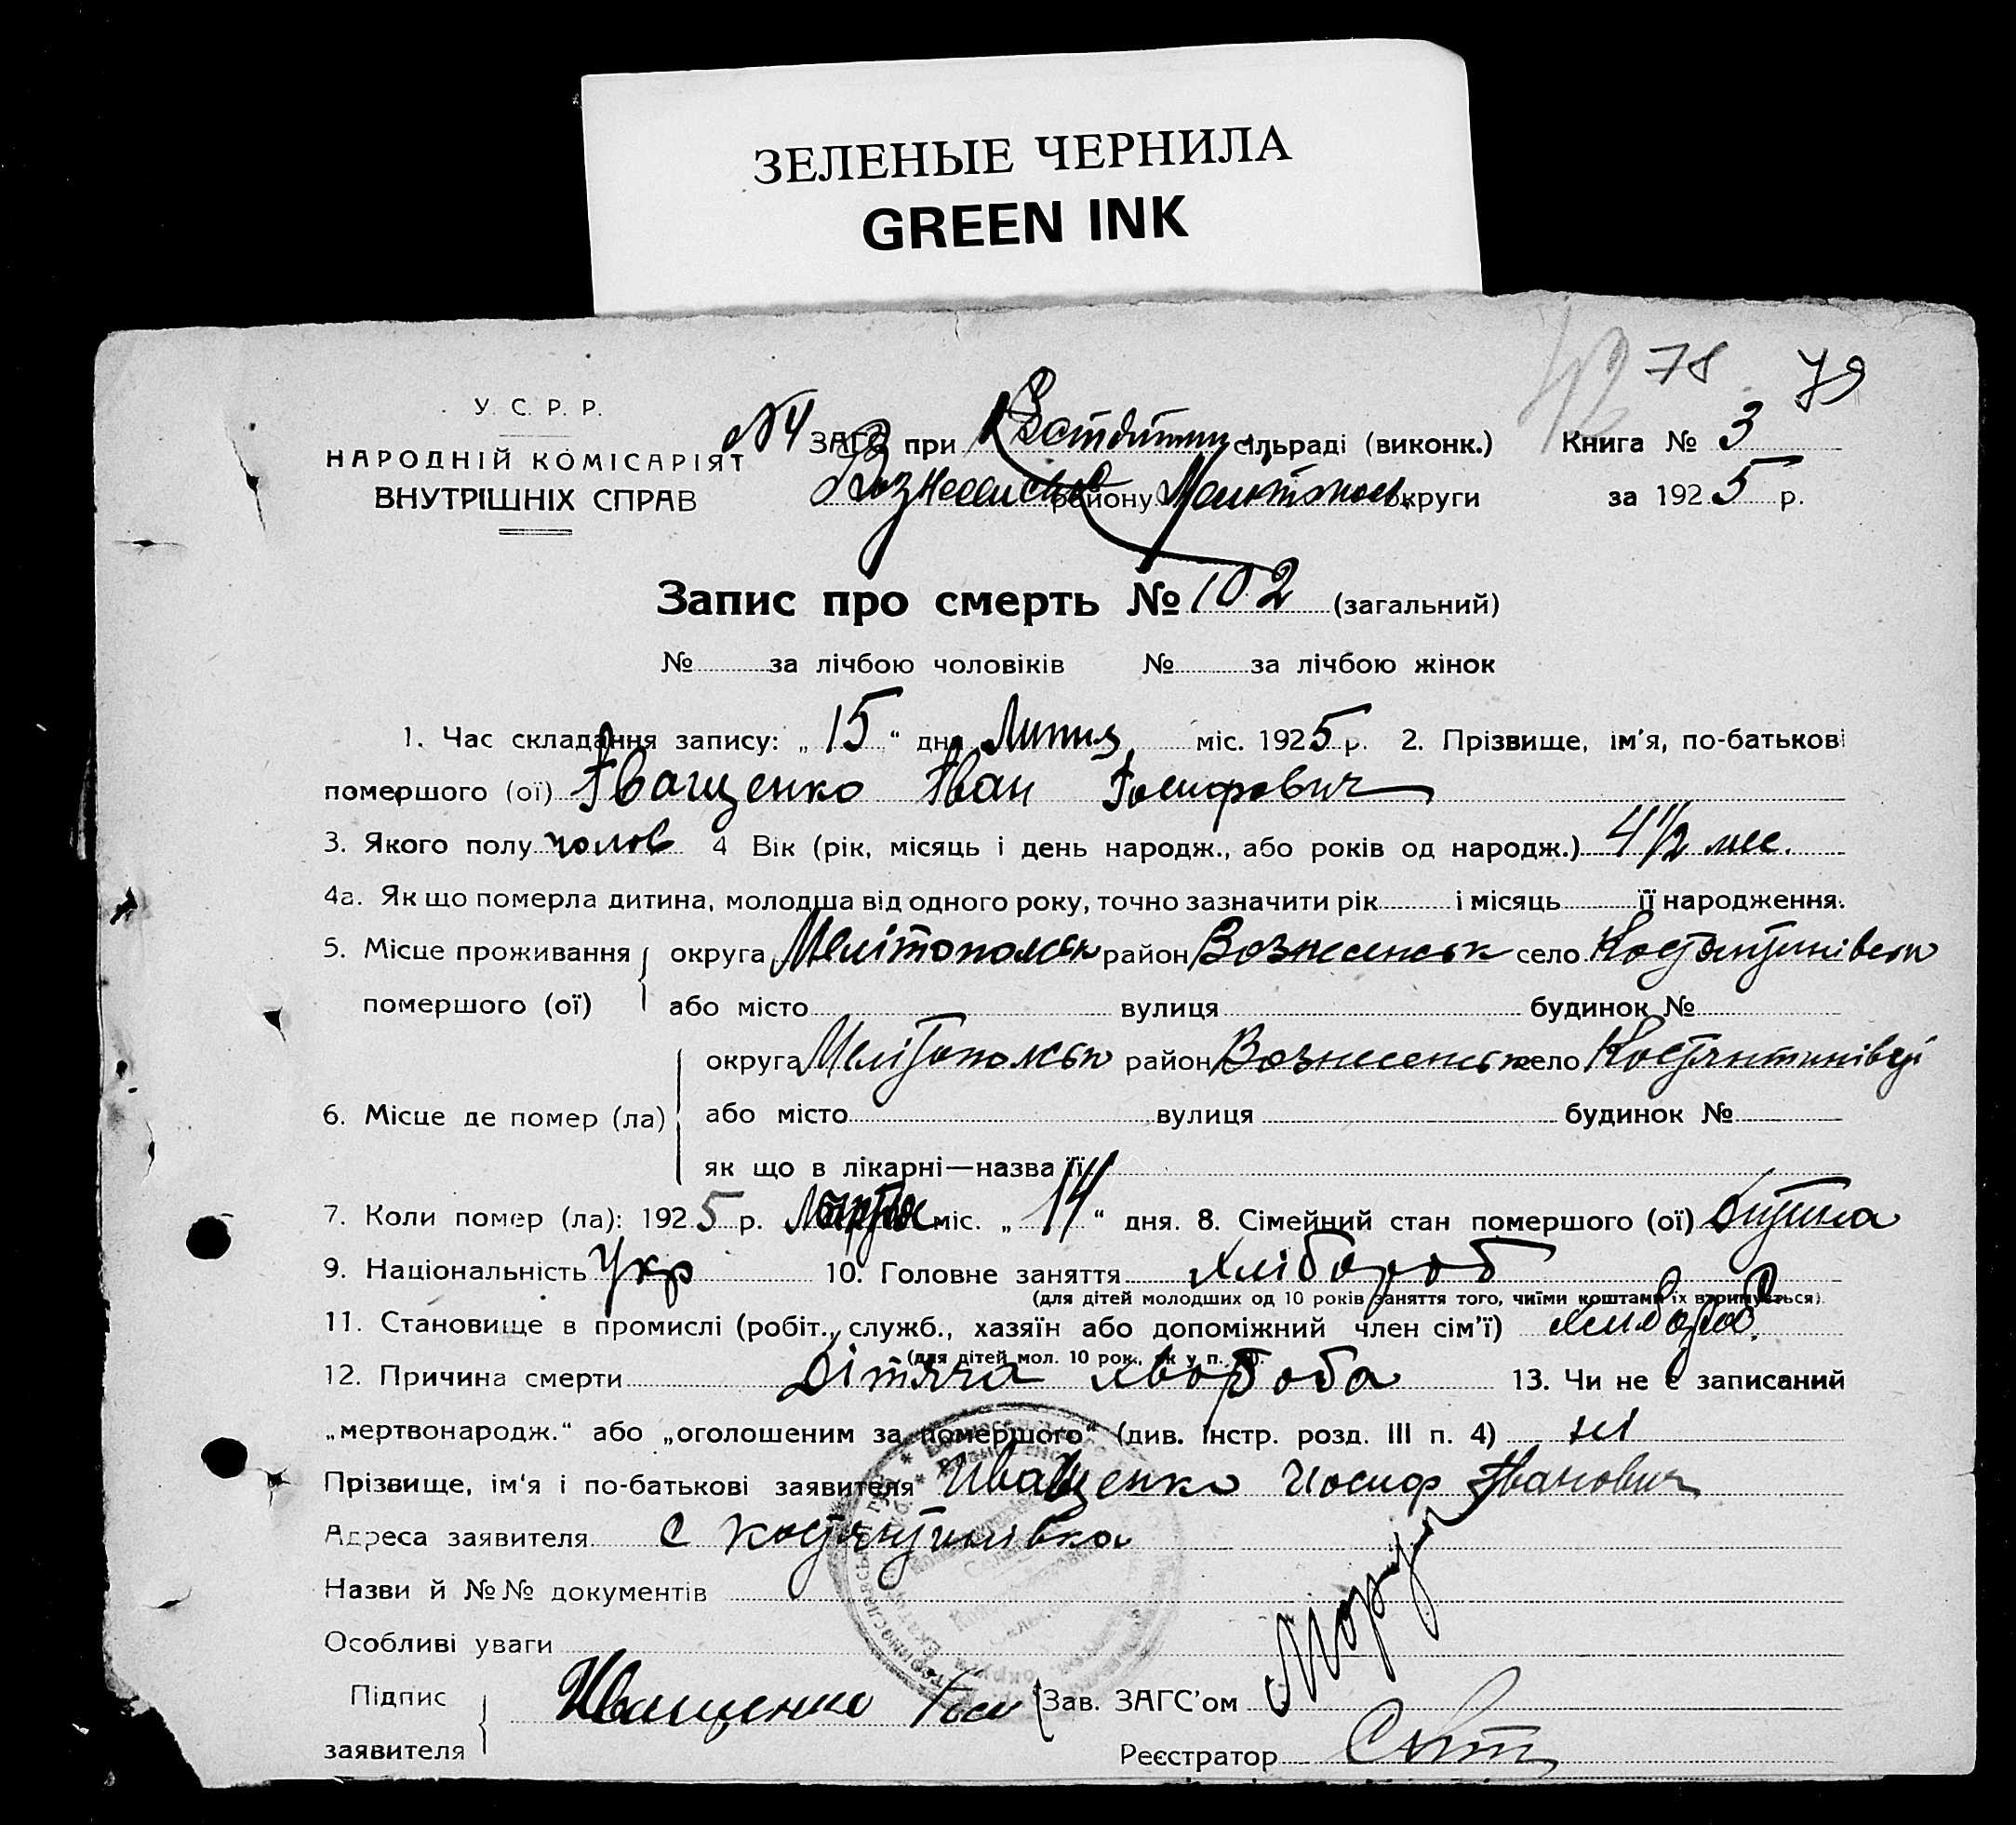 ЗЕЛЕНЫЕ ЧЕРНИЛА
GREEN INK
42 78 79
У. С. Р. Р.
НАРОДНІЙ КОМІСАРІЯТ
ВНУТРІШНІХ СПРАВ
№4 ЗАГС при сільраді (виконк.) Книга № 3
району округи за 1925 р.
Запис про смерть № 102 (загальний)
№ за лічбою чоловіків № за лічбою жінок
1. Час складання запису: „ 15 “ дня Липця міс. 1925 р. 2. Прізвище, ім'я, по-батькові
помершого (ої) Іващенко Іван Іосифович
3. Якого полу чолов 4 Вік (рік, місяць і день народж., або років од народж.) 4 1/2 мес.
4а. Як що померла дитина, молодша від одного року, точно зазначити рік і місяць її народження.
5. Місце проживання округа Мелітопольск район Вознесенськ село
помершого (ої) або місто вулиця будинок №
округа Мелітопольск район Вознесенськ село
6. Місце де помер (ла) або місто вулиця будинок №
як що в лікарні—назва її
7. Коли помер (ла): 1925 р. міс. „ 14 “ дня. 8. Сімейний стан помершого (ої)
9. Національність Укр 10. Головне заняття хлібороб
(для дітей молодших од 10 років заняття того, чиїми коштами їх втримується)
11. Становище в промислі (робіт., служб., хазяїн або допоміжний член сім'ї)
(для дітей мол. 10 рок., як у п. 10).
12. Причина смерти Дітяча хвороба 13. Чи не є записаний
„мертвонародж.“ або „оголошеним за помершого“ (див. інстр. розд. III п. 4) ні
Прізвище, ім'я і по-батькові заявителя Иващенко Иосиф Іванович
Адреса заявителя с Костянтинівка
Назви й №№ документів
Особливі уваги
Підпис
заявителя Иващенко Иос Зав. ЗАГС'ом
Реєстратор